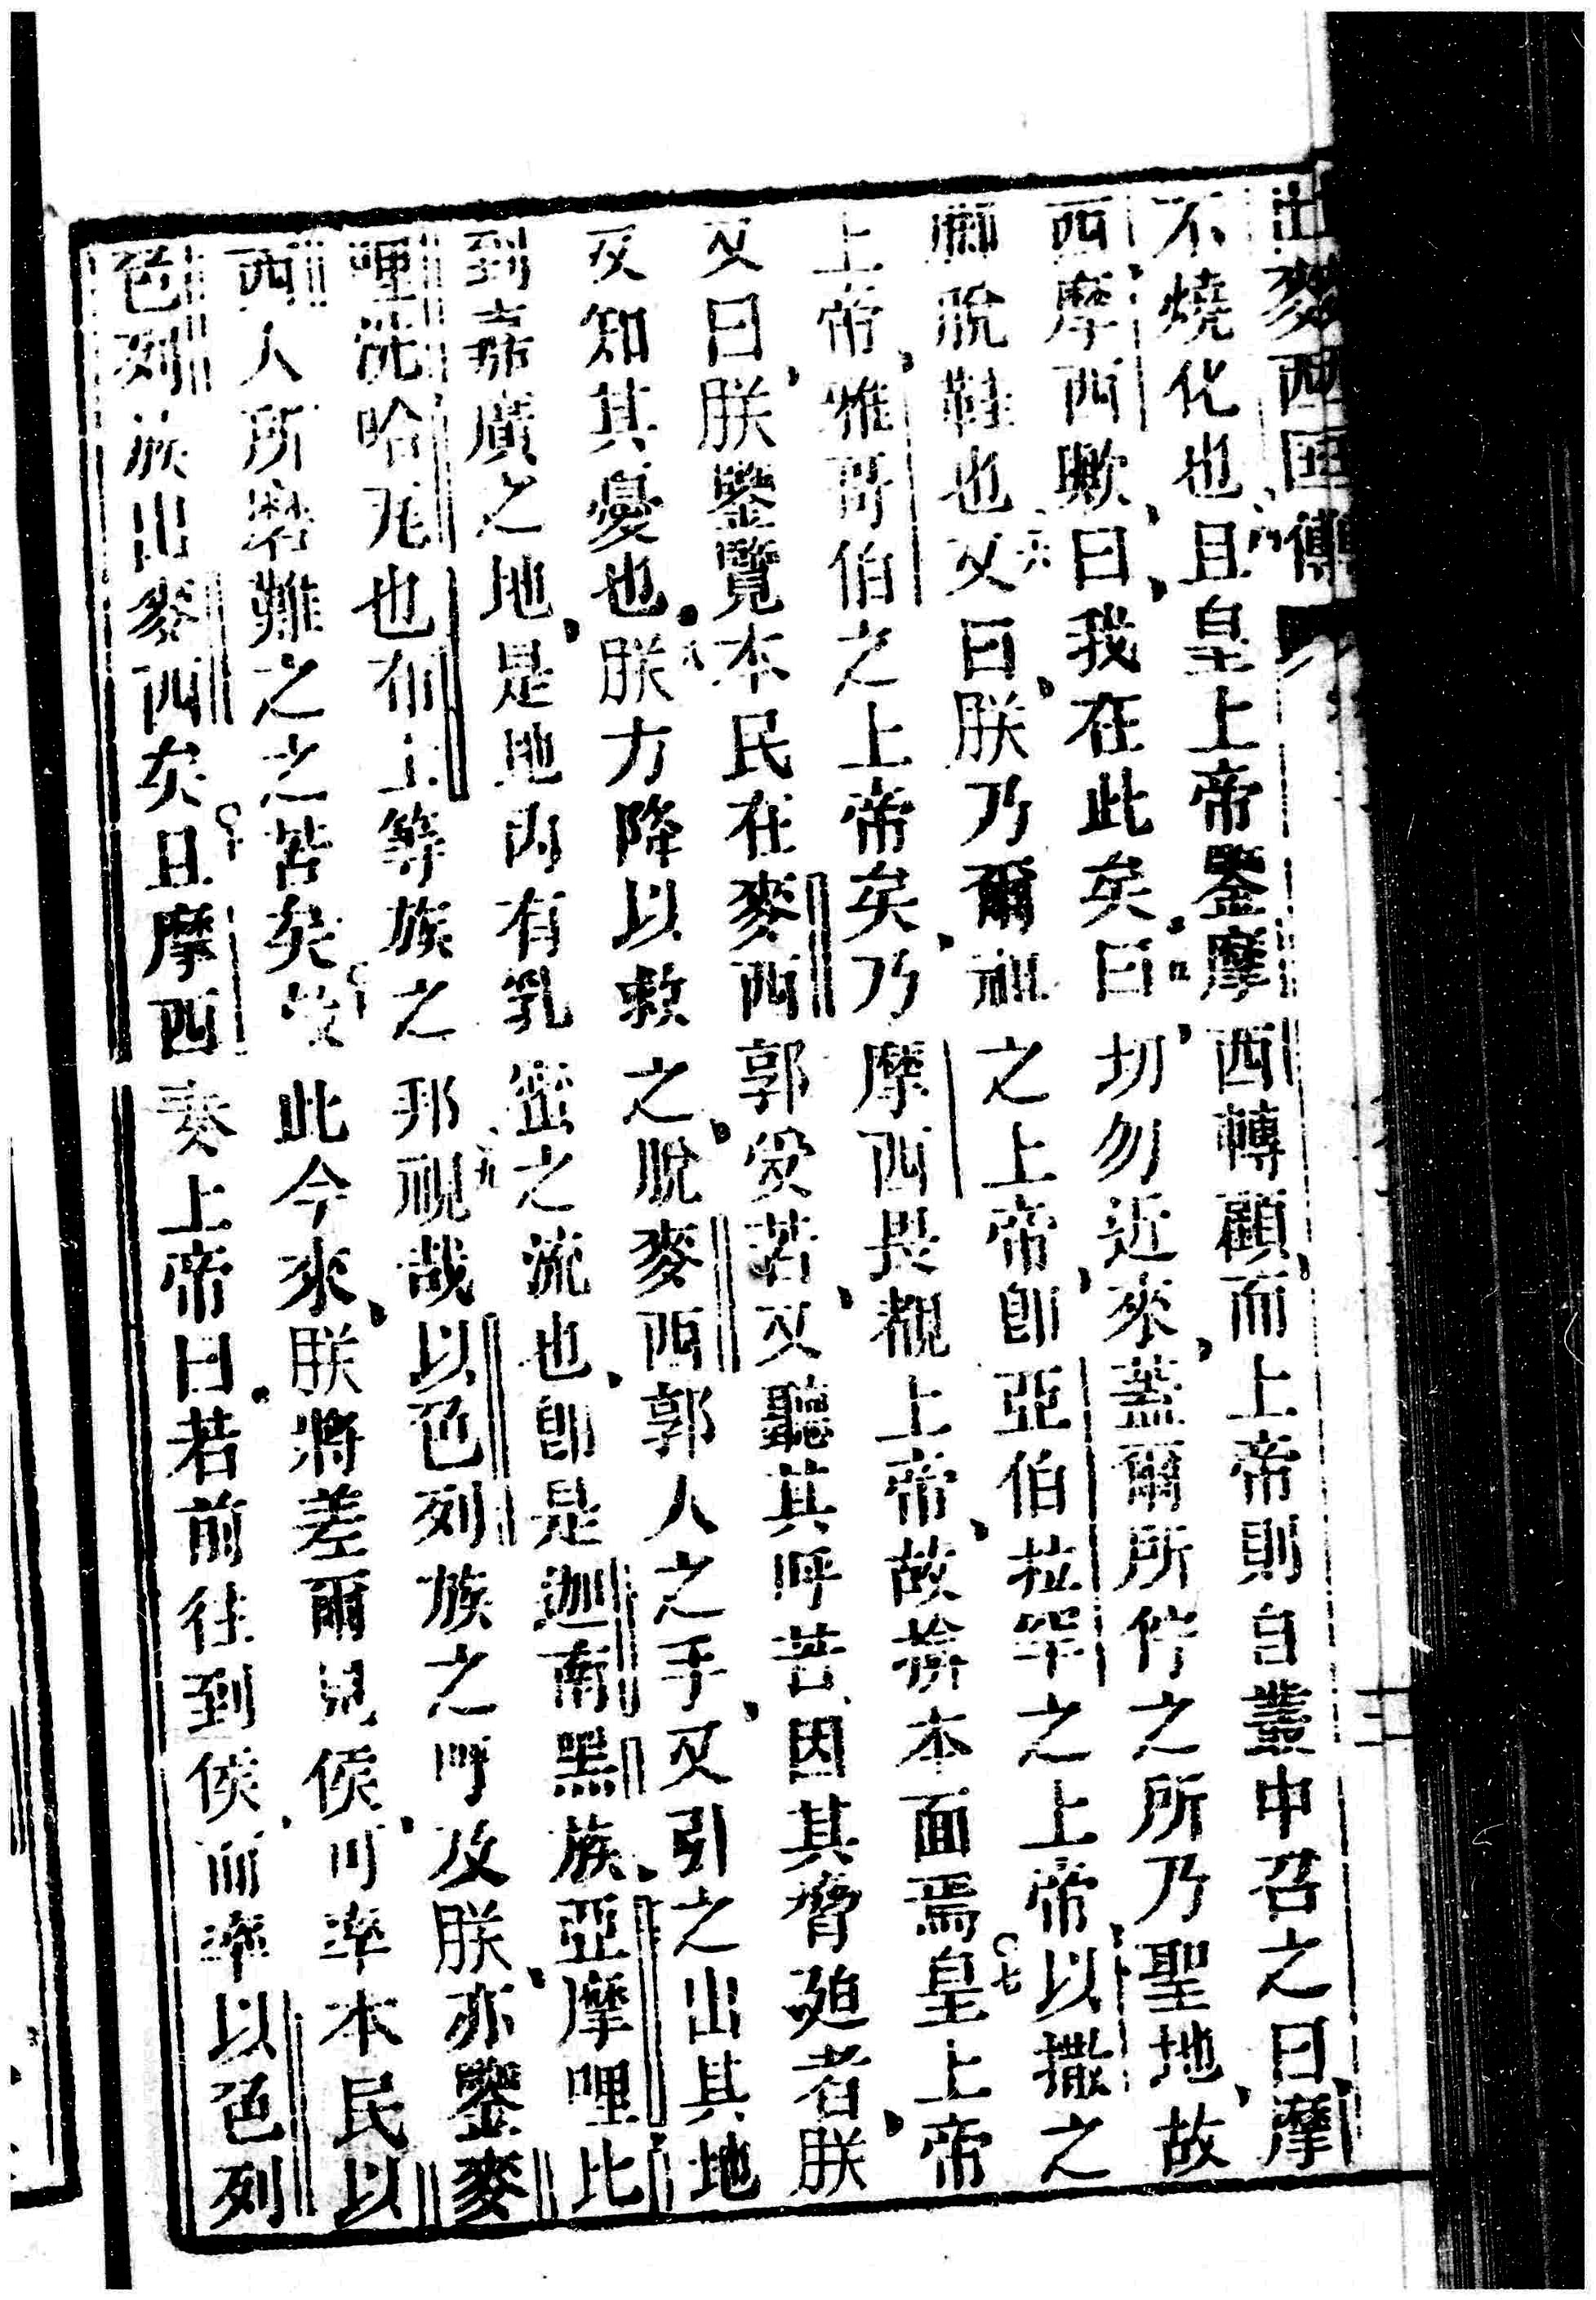 出麥西国傳
三
不燒化也且皇上帝鑒摩西轉顧而上帝則自叢中召之曰摩
西摩西歟曰我在此矣曰切勿近來蓋爾所佇之所乃聖地故
腳脫鞋也又曰朕乃爾祖之上帝卽亞伯拉罕之上帝以撒之
上帝雅哥伯之上帝矣乃摩西畏覩上帝故揜本面焉皇上帝
又曰朕鑒覽本民在麥西郭受苦又聽其呼苦因其脅廹者朕
又知其憂也朕方降以救之脫麥西郭人之手又引之出其地
到嘉廣之地是地內有乳蜜之流也卽是迦南黑族亞摩哩比
哩洗哈尾也布士等族之邦視哉以色列族之呼及朕亦鑒麥
西人所磨難之之苦矣故此今來朕將差爾見侯可率本民以
色列族出麥西矣且摩西奏上帝曰若前往到侯而率以色列